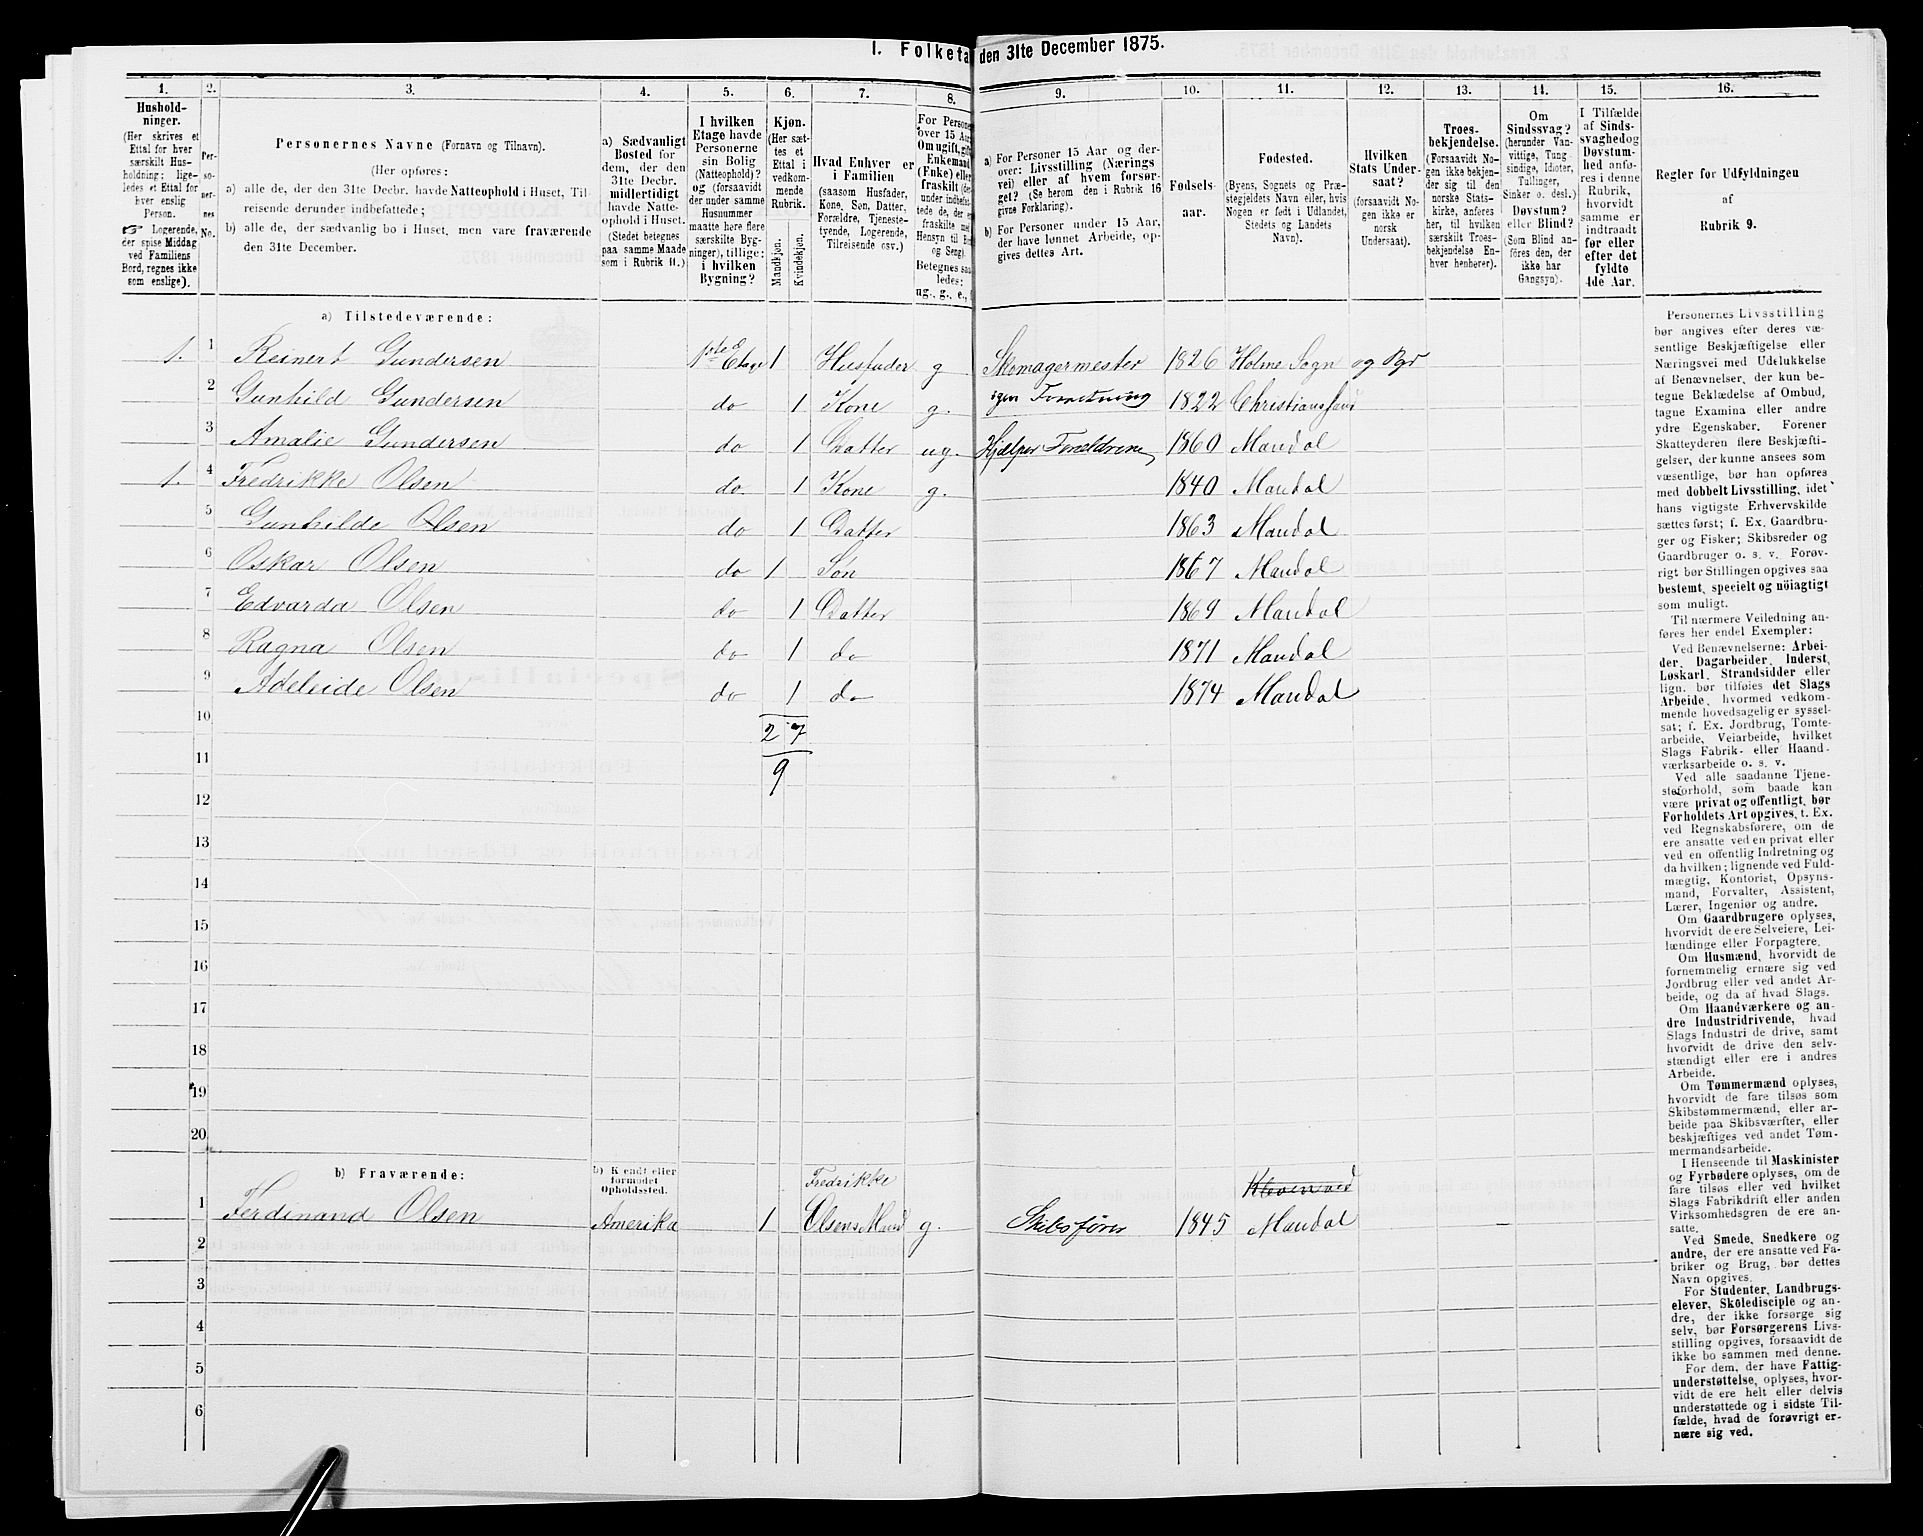 I. Folketa den 31te December 1875.
1. 2. 3. 4. 5. 6. 7. 8. 9. 10. 11. 12. 13. 14. 15. 16.
Hushold-
ninger.
(Her skrives et
Ettal for hver
særskilt Hus-
holdning; lige-
ledes et Ettal for
hver enslig
Person.
☞ Logerende,
der spise Middag
ved Familiens
Bord, regnes ikke
som enslige).
Per-
so-
ner-
nes
No.
Personernes Navne (Fornavn og Tilnavn).
(Her opføres:
a) alle de, der den 31te Decbr. havde Natteophold i Huset, Til-
reisende derunder indbefattede;
b) alle de, der sædvanlig bo i Huset, men vare fraværende
den 31te December.
a) Sædvanligt
Bosted for
dem, der den
31te Decbr.
midlertidigt
havde Natte-
ophold i Huset.
(Stedet betegnes
paa samme Maade
som i Rubrik 11.)
I hvilken
Etage havde
Personerne
sin Bolig
(Natteophold)?
og (forsaavidt
der under samme
Husnummer
maatte høre flere
særskilte Byg-
ninger), tillige:
i hvilken
Bygning?
Kjøn.
(Her sæt-
tes et
Ettal i
vedkom-
mende
Rubrik.
Mandkjøn.
Kvindekjøn.
Hvad Enhver er
i Familien
(saasom Husfader,
Kone, Søn, Datter,
Forældre, Tjeneste-
tyende, Logerende,
Tilreisende osv.).
For Persone
over 15 Aar
Om ugift, gift
Enkemand
(Enke) eller
fraskilt (de
under indbefat-
tede de, der e
fraskilte med
Hensyn til Bo
og Seng).
Betegnes saa
ledes:
ug., g., e.,
a) For Personer 15 Aar og der-
over: Livsstilling (Nærings
vei) eller af hvem forsør-
get? (Se herom den i Rubrik 16
givne Forklaring).
b) For Personer under 15 Aar,
der have lønnet Arbeide, op-
gives dettes Art.
Fødsels-
aar.
Fødested.
(Byens, Sognets og Præ-
stegjeldets Navn eller, hvis
Nogen er født i Udlandet,
Stedets og Landets
Navn).
Hvilken
Stats Under-
saat?
(forsaavidt No-
gen ikke er
norsk
Undersaat).
Troes-
bekjendelse.
(Forsaavidt No-
gen ikke bekjen-
der sig til den
norske Stats-
kirke, anføres
her, til hvilken
særskilt Troes-
bekjendelse En-
hver henhører).
Om
Sindssvag?
(herunder Van-
vittige, Tung-
sindige, Idioter,
Tullinger,
Sinker o. desl.)
Døvstum?
eller Blind?
(Som Blind an-
føres den, der
ikke har
Gangsyn).
I Tilfælde
af Sinds-
svaghed og
Døvstum-
hed anfø-
res i denne
Rubrik,
hvorvidt
samme er
indtraadt
før eller
efter det
fyldte
4de Aar.
Regler for Udfyldningen
af
Rubrik 9.
a) Tilstedeværende:
1. 1 Reinert Gundersen 1ste Etage 1 Husfader g Skomagermester 1826 Holms Sogn og Pgr
2 Gunhild Gundersen do 1 Kone g. egen Forretning 1822 Christianssand
3 Amalie Gundersen do 1 Datter ug. Hjælper Forældrene 1860 Mandal
1. 4 Fredrikke Olsen do. 1 Kone g. 1840 Mandal
5 Gunhilde Olsen do 1 Datter 1863 Mandal
6 Oskar Olsen do 1 Søn 1867 Mandal
7 Edvarda Olsen do 1 Datter 1869 Mandal
8 Ragna Olsen do 1 do 1871 Mandal
9 Adeleide Olsen do 1 do 1874 Mandal
10 2 7
11 9
12
13
14
15
16
17
18
19
20
b) Fraværende:
b) Kjendt eller
formodet
Opholdssted.
Fredrikke
Kleven ved
1 Ferdinand Olsen Amerika 1 Olsens Mand g. Skibsfører 1845 Mandal
2
3
4
5
6
Personernes Livsstilling
bør angives efter deres væ-
sentlige Beskjæftigelse eller
Næringsvei med Udelukkelse
af Benævnelser, der kun be-
tegne Beklædelse af Ombud,
tagne Examina eller andre
ydre Egenskaber. Forener
Skatteyderen flere Beskjæfti-
gelser, der kunne ansees som
væsentlige, bør han opføres
med dobbelt Livsstilling, idet
hans vigtigste Erhvervskilde
sættes først; f. Ex. Gaardbru-
ger og Fisker; Skibsreder og
Gaardbruger o. s. v. Forøv-
rigt bør Stillingen opgives saa
bestemt, specielt og nöiagtigt
som muligt.
Til nærmere Veiledning an-
føres her endel Exempler:
Ved Benævnelserne: Arbei-
der, Dagarbeider, Inderst,
Løskarl, Strandsidder eller
lign. bør tilføies det Slags
Arbeide, hvormed vedkom-
mende hovedsagelig er syssel-
sat; f. Ex. Jordbrug, Tomte-
arbeide, Veiarbeide, hvilket
Slags Fabrik- eller Haand-
værksarbeide o. s. v.
Ved alle saadanne Tjene-
steforhold, som baade kan
være privat og offentligt, bør
Forholdets Art opgives, t. Ex.
ved Regnskabsførere, om de
ere ansatte ved en privat eller
ved en offentlig Indretning og
da hvilken; lignende ved Fuld-
mægtig, Kontorist, Opsyns-
mand, Forvalter, Assistent,
Lærer, Ingeniør og andre.
Om Gaardbrugere oplyses,
hvorvidt de ere Selveiere, Lei-
lændinge eller Forpagtere.
Om Husmænd, hvorvidt de
fornemmelig ernære sig ved
Jordbrug eller ved andet Ar-
beide, og da af hvad Slags.
Om Haandværkere og an-
dre Industridrivende, hvad
Slags Industri de drive, samt
hvorvidt de drive den selv-
stændigt eller ere i andres
Arbeide.
Om Tømmermænd oplyses,
hvorvidt de fare tilsøs som
Skibstømmermænd, eller ar-
beide paa Skibsværfter, eller
beskjæftiges ved andet Tøm-
mermandsarbeide.
I Henseende til Maskinister
og Fyrbødere oplyses, om de
fare tilsøs eller ved hvilket
Slags Fabrikdrift eller anden
Virksomhedsgren de ere an-
satte.
Ved Smede, Snedkere og
andre, der ere ansatte ved Fa-
briker og Brug, bør dettes
Navn opgives.
For Studenter, Landbrugs-
elever, Skoledisciple og an-
dre, der ikke forsørge sig
selv, bør Forsørgerens Livs-
stilling opgives, forsaavidt de
ikke bo sammen med denne.
For dem, der have Fattig-
understøttelse, oplyses, hvor-
vidt de ere helt eller delvis
understøttede og i sidste Til-
fælde, hvad de forøvrigt er-
nære sig ved.